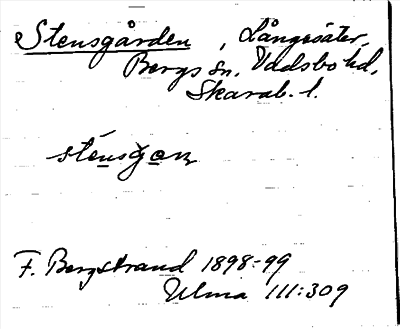 Stensgården, Långesäter,
Bergs sn. Vadsbo hd.
Skarab. l.
sténsgɑɳ
F. Bergstrand 1898-99
Ulma 111:309